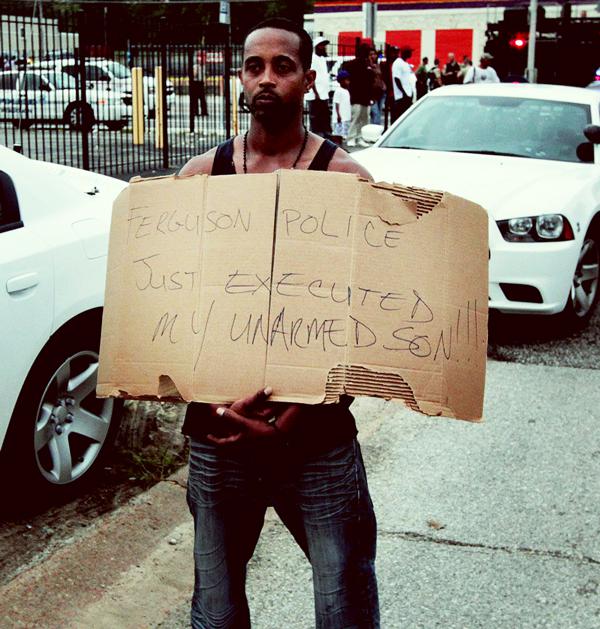 FERGUSON POLICE
JUST EXECUTED
MY UNARMED SON!!!